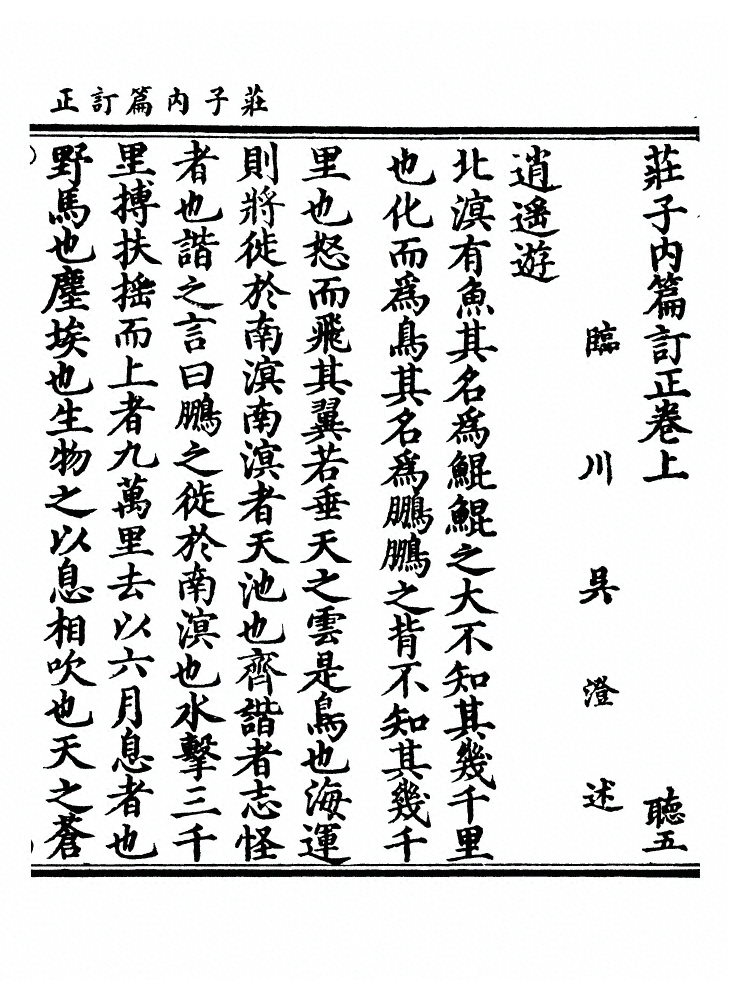 莊子內篇訂正
莊子內篇訂正卷上 聽五
臨川吳澄述
逍遙遊
北溟有魚其名爲鯤鯤之大不知其幾千里
也化而爲鳥其名爲鵬鵬之背不知其幾千
里也怒而飛其翼若垂天之雲是鳥也海運
則將徙於南溟南溟者天池也齊諧者志怪
者也諧之言曰鵬之徙於南溟也水擊三千
里搏扶搖而上者九萬里去以六月息者也
野馬也塵埃也生物之以息相吹也天之蒼